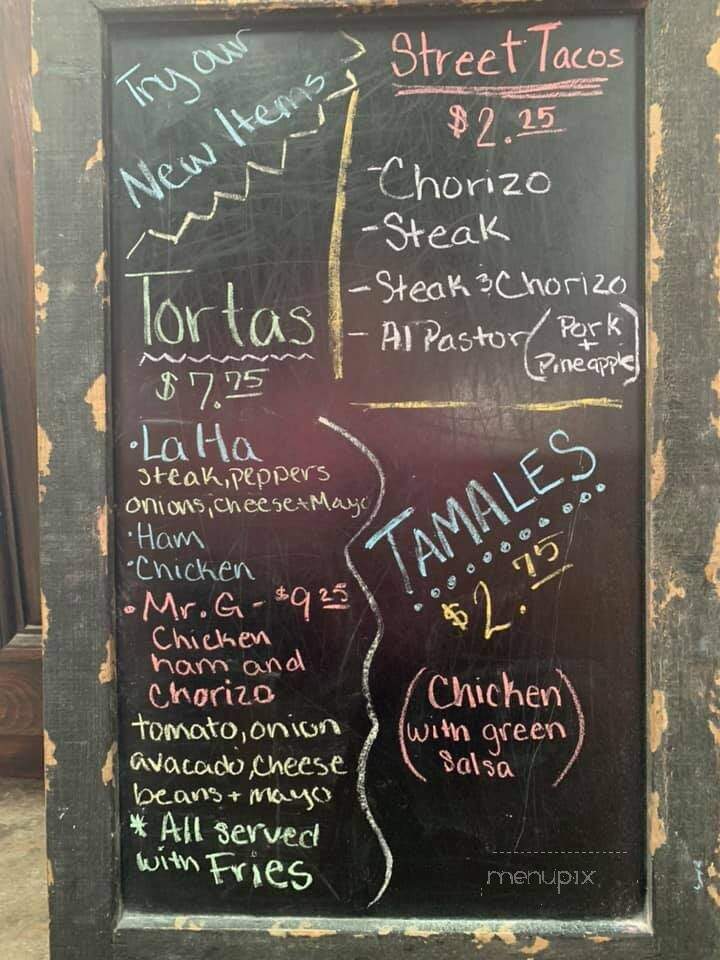 Try our
New Items
Street Tacos
$2.25
- Chorizo
- Steak
- Steak & Chorizo
- Al Pastor (Pork
+
Pineapple)
Tortas
$7.75
• La Ha
steak, peppers
onions, cheese + Mayo
• Ham
• Chicken
• Mr. G - $9.25
Chicken
ham and
Chorizo
tomato, onion
avacado, cheese
beans + mayo
* All served
with Fries
TAMALES
$2.75
(Chicken
with green
Salsa)
menupix